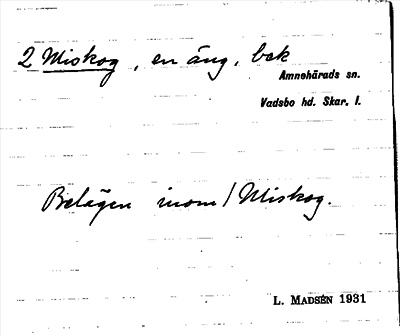 2 Miskog, en äng, bek
Amnehärads sn.
Vadsbo hd. Skar. l.
Belägen inom 1 Miskog.
L. MADSÉN 1931